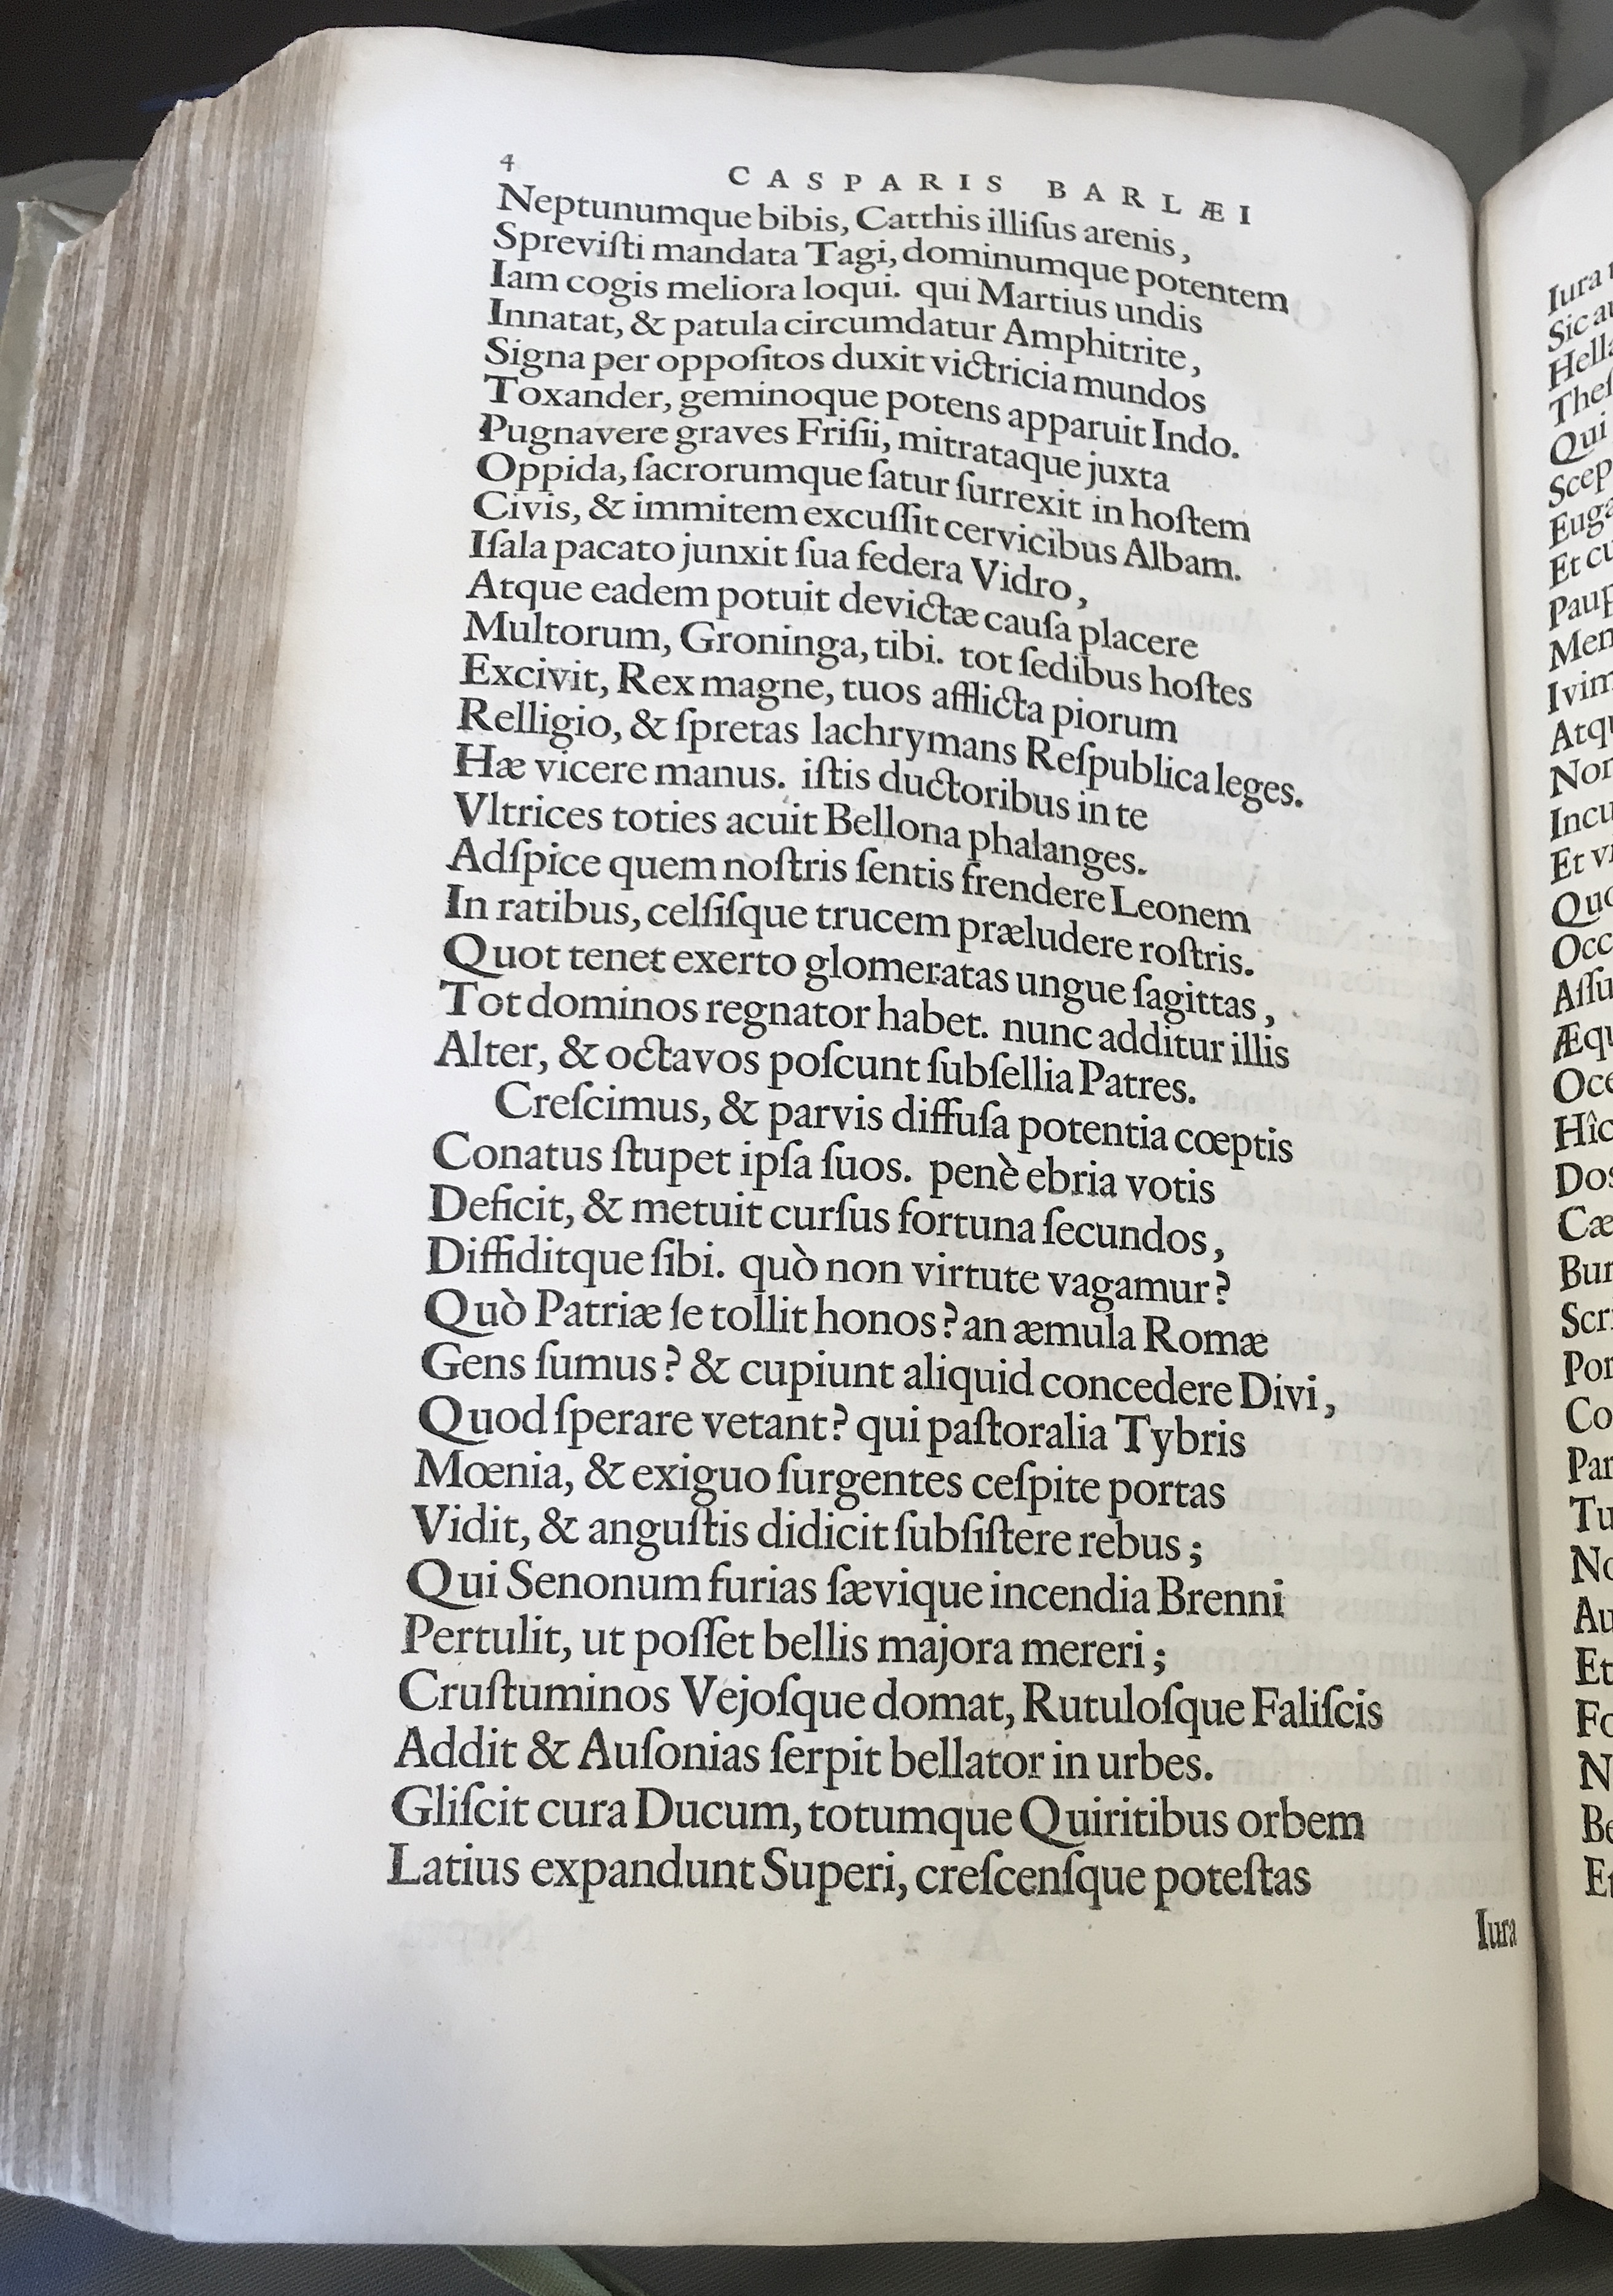 4
CASPARIS BARLÆI
Neptunumque bibis, Catthis illiſus arenis,
Spreviſti mandata Tagi, dominumque potentem
Iam cogis meliora loqui. qui Martius undis
Innatat, & patula circumdatur Amphitrite,
Signa per oppoſitos duxit victricia mundos
Toxander, geminoque potens apparuit Indo.
Pugnavere graves Friſii, mitrataque juxta
Oppida, ſacrorumque ſatur ſurrexit in hoſtem
Civis, & immitem excuſſit cervicibus Albam.
Iſala pacato junxit ſua federa Vidro,
Atque eadem potuit devictæ cauſa placere
Multorum, Groninga, tibi. tot ſedibus hoſtes
Excivit, Rex magne, tuos afflicta piorum
Relligio, & ſpretas lachrymans Reſpublica leges.
Hæ vicere manus. iſtis ductoribus in te
Vltrices toties acuit Bellona phalanges.
Adſpice quem noſtris ſentis frendere Leonem
In ratibus, celſiſque trucem præludere roſtris.
Quot tenet exerto glomeratas ungue ſagittas,
Tot dominos regnator habet. nunc additur illis
Alter, & octavos poſcunt ſubſellia Patres.
Creſcimus, & parvis diffuſa potentia cœptis
Conatus ſtupet ipſa ſuos. penè ebria votis
Deficit, & metuit curſus fortuna ſecundos,
Diffiditque ſibi. quò non virtute vagamur?
Quò Patriæ ſe tollit honos? an æmula Romæ
Gens ſumus? & cupiunt aliquid concedere Divi,
Quod ſperare vetant? qui paſtoralia Tybris
Mœnia, & exiguo ſurgentes ceſpite portas
Vidit, & anguſtis didicit ſubſiſtere rebus;
Qui Senonum furias ſævique incendia Brenni
Pertulit, ut poſſet bellis majora mereri;
Cruſtuminos Vejoſque domat, Rutuloſque Faliſcis
Addit & Auſonias ſerpit bellator in urbes.
Gliſcit cura Ducum, totumque Quiritibus orbem
Latius expandunt Superi, creſcenſque poteſtas
Iura
Iura
Qui
Et